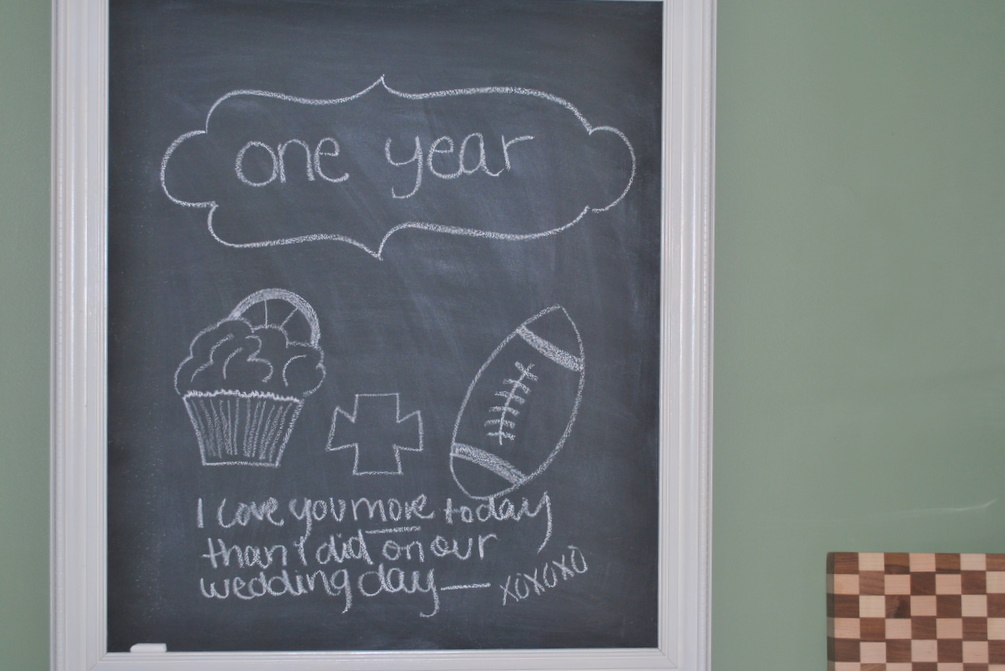 one year
I love you more today
than I did on our
wedding day— xoxoxo